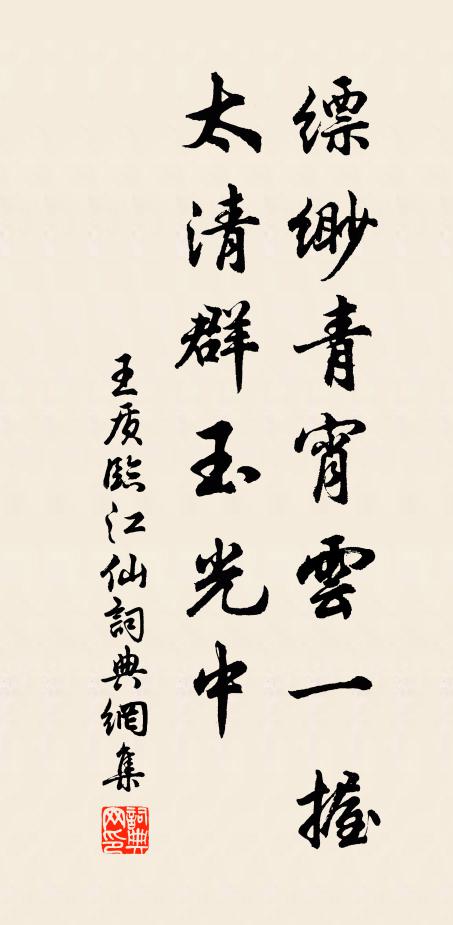 缥缈青宵雲一握
太清群玉光中
王质臨江仙詞典網集
詞典网印